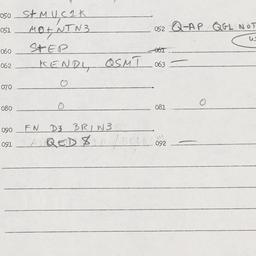 050 StMUC1K
051 MOtNTN3 052 Q-AP QGL NOT
060 StEP 061
062 KENDL, QSMT 063 —
070 O
080 O 081 O
090 FN D3 3RIN3
091 QED 8 092 —